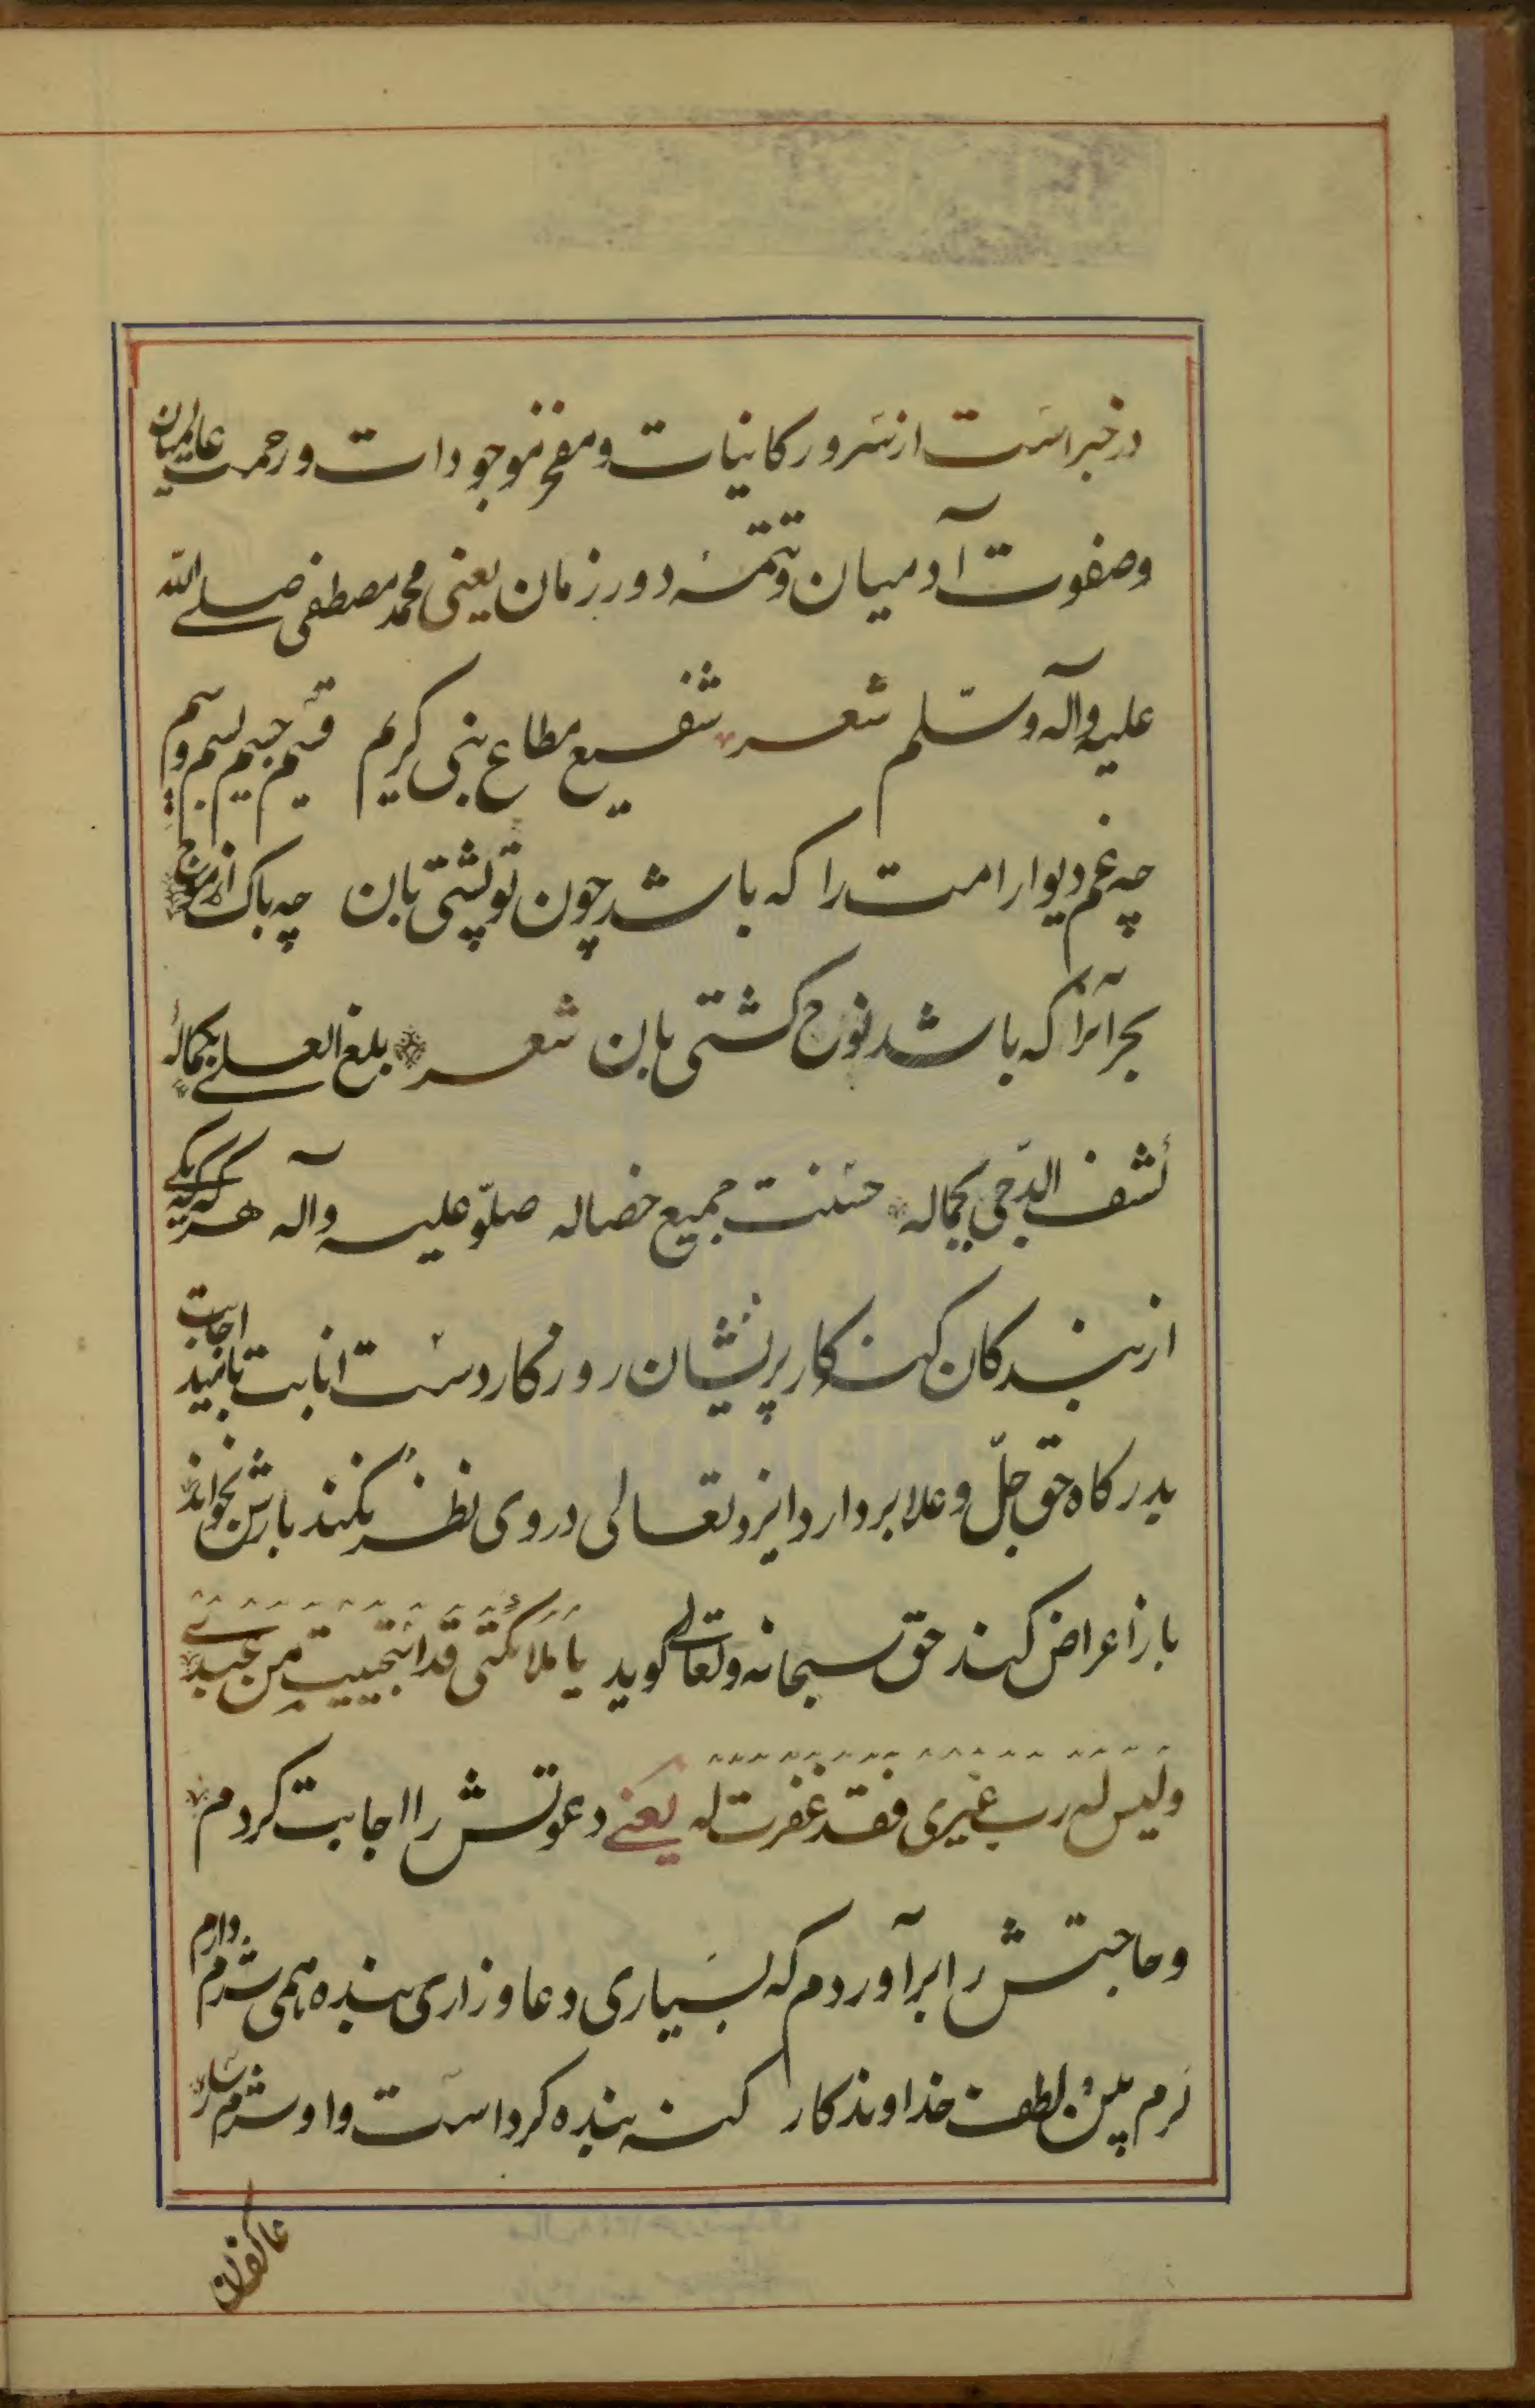 در خبر است از سرور کاینات و مفخر موجودات و رحمت عالمیان
و صفوت آدمیان و تتمه دور زمان یعنی محمد مصطفی صلی الله
علیه و آله و سلم شعر شفیع مطاع نبی کریم قسیم جسیم بسیم وسیم
چه غم دیوار امت را که باشد چون تو پشتی بان چه باک از موج
بحر آنرا که باشد نوح کشتی بان شعر بلغ العلی بکماله
کشف الدجی بجماله حسنت جمیع خصاله صلّو علیه و آله هر گه که یکی
از بندکان کنه کار پریشان روزکار دست انابت بامید اجابت
بدرکاه حق جلّ و علا بردارد ایزد تعالی در وی نظر نکند بازش بخواند
باز اعراض کند حق سبحانه و تعالی کوید یا مَلائکتی قد استحییت من عبدی
و لیس له رب غیری فقد غفرت له یعنی دعوتش را اجابت کردم
و حاجتش را برآوردم که بسیاری دعا و زاری بنده همی شرم دارم
کرم بین و لطف خداوندکار کنه بنده کرد است و او شرمسار
عاکفان